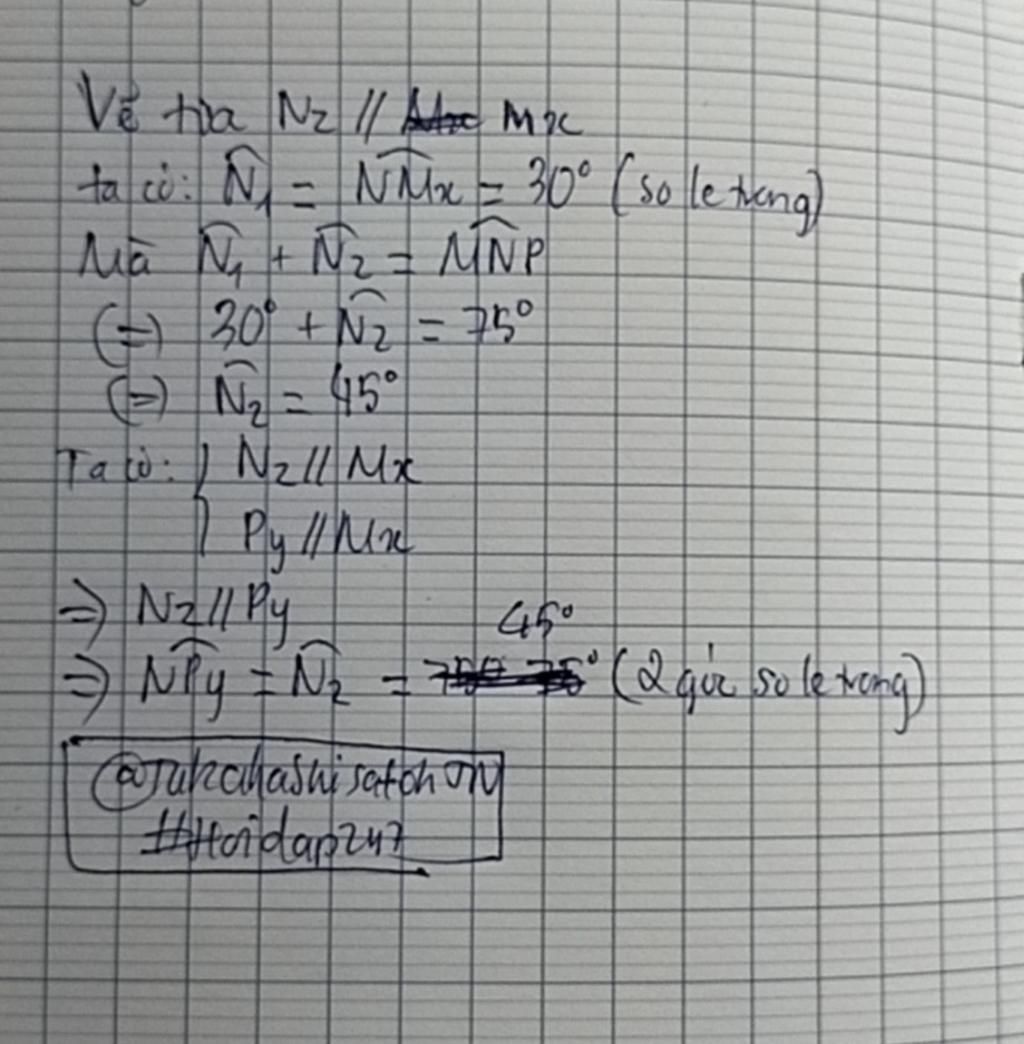 Vẽ tia Nz // Mx
ta có: N̂₁ = NM̂x = 30° (so le trong)
Mà N̂₁ + N̂₂ = MN̂P
(=) 30° + N̂₂ = 75°
(=) N̂₂ = 45°
Ta có: { Nz // Mx
Py // Mx
=> Nz // Py
45°
=> NP̂y = N̂₂ = (2 góc so le trong)
#Hoidap247